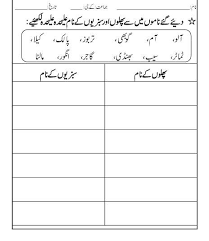 نام: ____________ جماعت کے جی: ____________ تاریخ: ____________
☆ دیئے گئے ناموں میں سے پھلوں اور سبزیوں کے نام علیحدہ علیحدہ لکھیئے۔
آلو، آم، گوبھی، تربوز، پالک، کیلا،
ٹماٹر، سیب، بھنڈی، گاجر، انگور، مالٹا
پھلوں کے نام سبزیوں کے نام